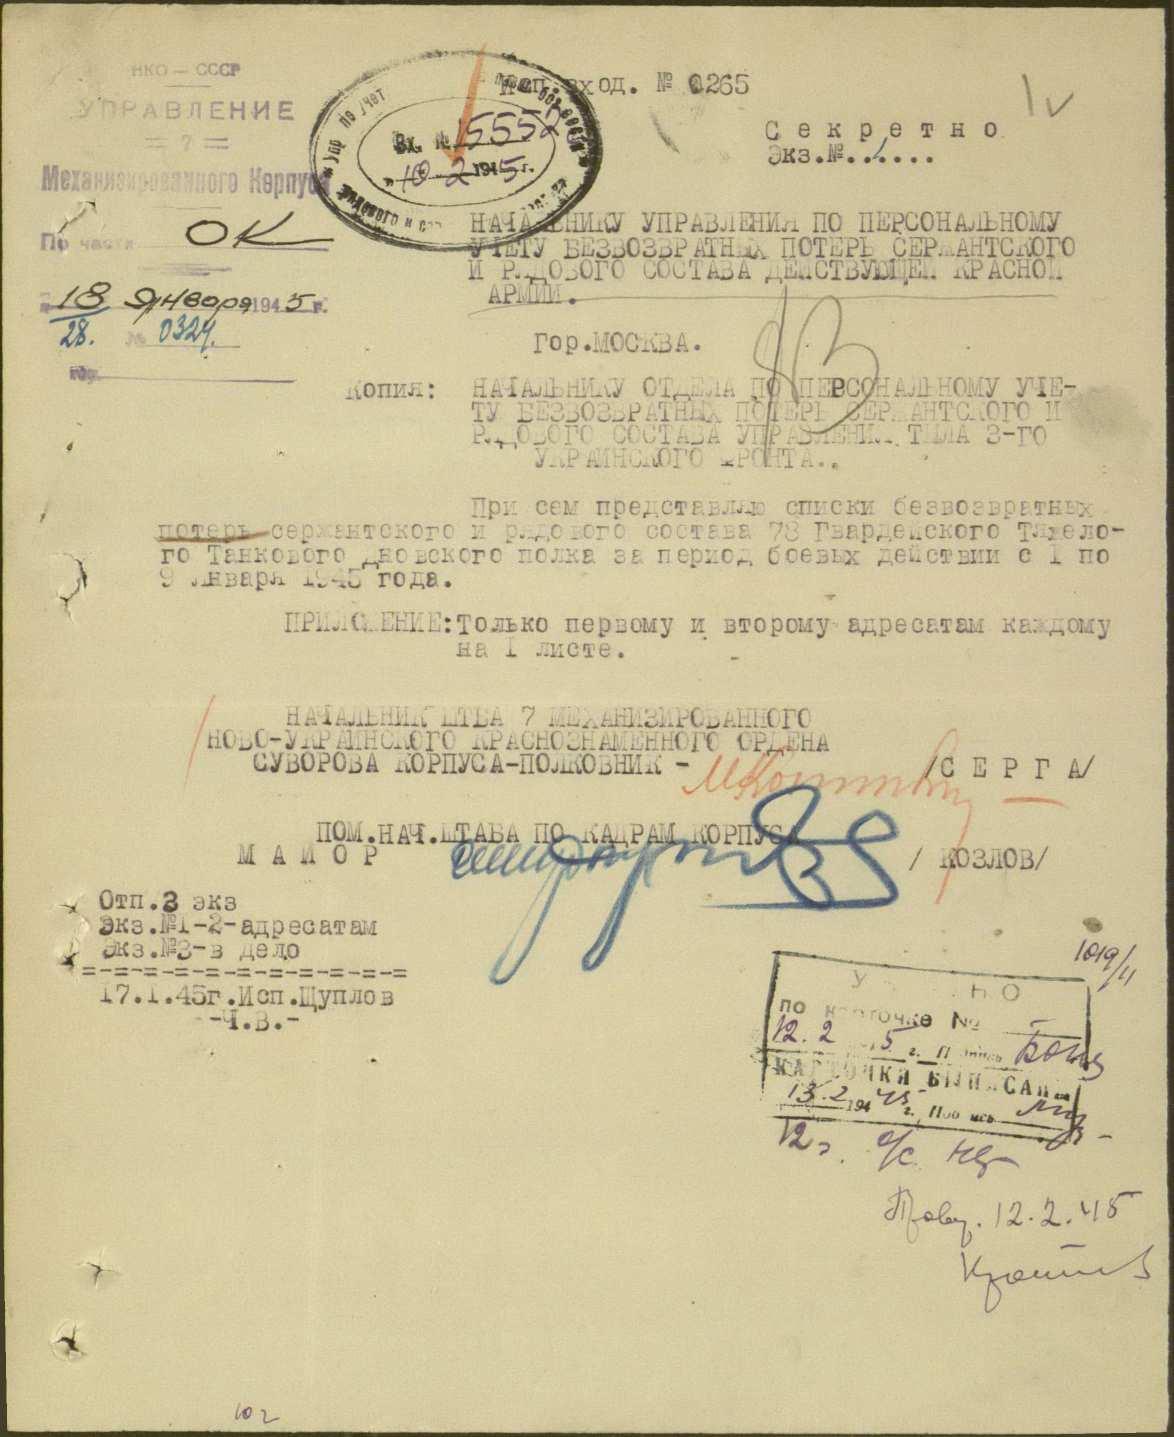 НКО — СССР
УПРАВЛЕНИЕ
= 7 =
Механизированного Корпуса
По части ОК
"18" Января 1945 г.
28. № 0324.
гор.
вход. № 0265
Упр по учет
Вх. № 15552
"10" 2 1945 г.
Секретно
Экз.№..1....
НАЧАЛЬНИКУ УПРАВЛЕНИЯ ПО ПЕРСОНАЛЬНОМУ
УЧЕТУ БЕЗВОЗВРАТНЫХ ПОТЕРЬ СЕРЖАНТСКОГО
И РЯДОВОГО СОСТАВА ДЕЙСТВУЮЩЕЙ КРАСНОЙ
АРМИИ.
Гор.МОСКВА.
Копия: НАЧАЛЬНИКУ ОТДЕЛА ПО ПЕРСОНАЛЬНОМУ УЧЕ-
ТУ БЕЗВОЗВРАТНЫХ ПОТЕРЬ СЕРЖАНТСКОГО И
РЯДОВОГО СОСТАВА УПРАВЛЕНИЯ ТЫЛА 3-ГО
УКРАИНСКОГО ФРОНТА..
При сем представляю списки безвозвратных
потерь сержантского и рядового состава 78 Гвардейского Тяжело-
го Танкового дновского полка за период боевых действий с I по
9 Января 1945 года.
ПРИЛОЖЕНИЕ: Только первому и второму адресатам каждому
на I листе.
НАЧАЛЬНИК ШТБА 7 МЕХАНИЗИРОВАННОГО
НОВО-УКРАИНСКОГО КРАСНОЗНАМЕННОГО ОРДЕНА
СУВОРОВА КОРПУСА-ПОЛКОВНИК - /СЕРГА/
ПОМ.НАЧ.ШТАБА ПО КАДРАМ КОРПУСА
МАЙОР / КОЗЛОВ/
Отп.3 экз
Экз.№1-2-адресатам
Экз.№3-в дело
=-=-=-=-=-=-=-=-=-=-=
17.1.45г.Исп.Щуплов
-Ч.В.-
1019/11
по карточке №
12.2 1945 г. Подпись
КАРТОЧКИ ВЫПИСАНЫ
13.2 1945 г. Подпись
12г.
12.2.45
102